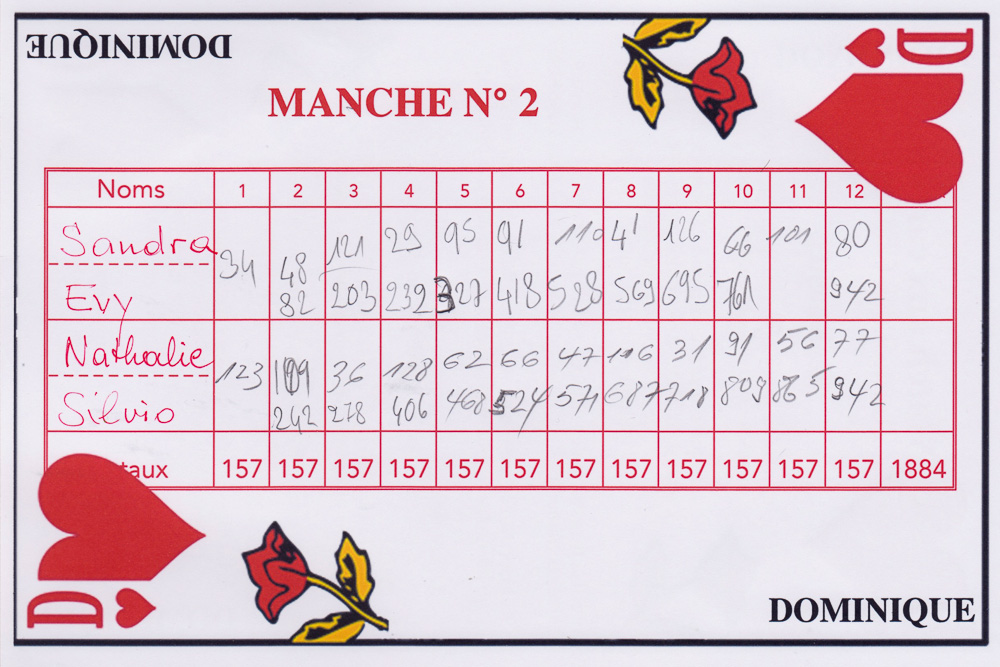 DOMINIQUE
D
MANCHE N° 2
Noms 1 2 3 4 5 6 7 8 9 10 11 12
Sandra 34 48 121 29 95 91 110 41 126 66 101 80
Evy 82 203 232 327 418 528 569 695 761 942
Nathalie 123 36 128 62 66 47 116 31 91 56 77
Silvio 242 278 406 468 524 571 687 718 809 865 942
taux 157 157 157 157 157 157 157 157 157 157 157 157 1884
D
DOMINIQUE